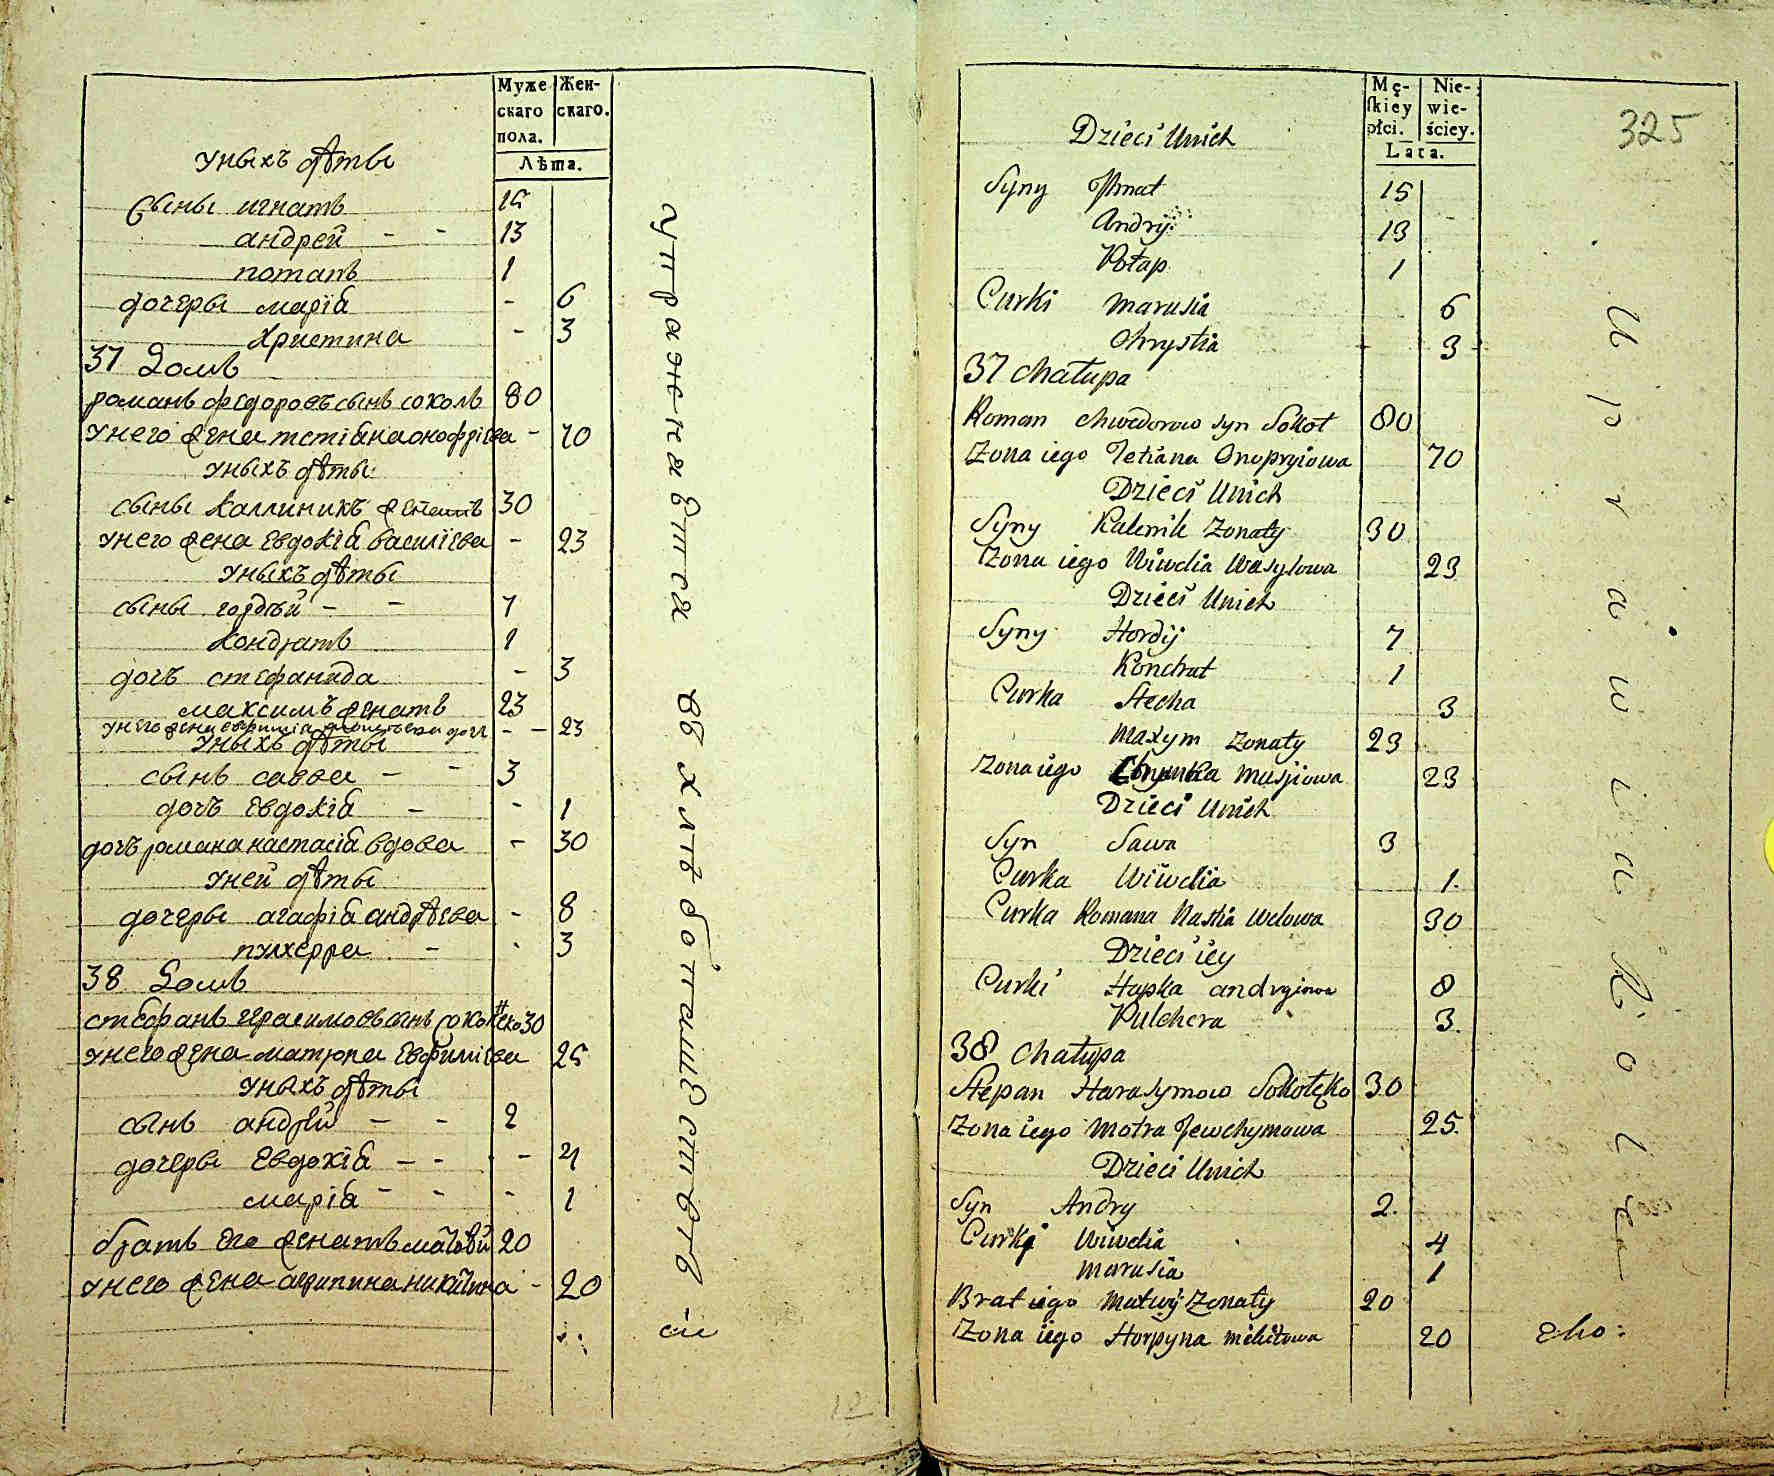 Муже
скаго
пола.
Жен-
скаго.
Лѣта.
у нихъ дѣти
сыны игнатъ 15
андрей - - 13
потапъ 1
дочери марія - 6
христина - 3
37 Домъ
романъ федоровъ сынъ соколъ 80
у него жена тетіана онофріева - 70
у нихъ дѣти
сыны каллиникъ женатъ 30
у него жена Евдокія василіева - 23
у нихъ дѣти
сыны гордѣй - - 7
кондратъ 1
дочь стефанида - 3
максимъ женатъ 23
у него жена дочь - - 23
у нихъ дѣти
сынъ савва - - 3
дочь Евдокія - - 1
дочь романа настасія вдова - 30
у ней дѣти
дочери агафія андрѣева - 8
пулхерра - - 3
38 Домъ
стефанъ герасимовъ сынъ соколенко 30
у него жена матрона Евфиміева 25
у нихъ дѣти
сынъ андрей - - 2
дочери Евдокія - - - 4
марія - - - 1
братъ Его женатъ матѳѣй 20
у него жена агрипина никитина - 20
упражняется въ хлѣбопашествѣ
12
Mę-
skiey
płci.
Nie-
wie-
ściey.
Lata.
325
Dzieci Unich
Syny Ihnat 15
Andrij 13
Potap 1
Curki Marusia 6
Chrystia 3
37 Chałupa
Roman Chwedorow syn Sokoł 80
Zona iego Tetiana Onopryiowa 70
Dzieci Unich
Syny Kalenik Zonaty 30
Zona iego Wiwdia Wasylowa 23
Dzieci Unich
Syny Hordij 7
Kondrat 1
Curka Stecha 3
Maxym Zonaty 23
Zona iego Musijowa 23
Dzieci Unich
Syn Sawa 3
Curka Wiwdia 1.
Curka Romana Nastia Wdowa 30
Dzieci iey
Curki Hapka andryiowa 8
Pulchera 3.
38 Chałupa
Stepan Harasymow Sokołęko 30
Zona iego Motra Jewchymowa 25.
Dzieci Unich
Syn Andry 2.
Curki Wiwdia 4
Marusia 1
Brat iego Matwij Zonaty 20
Zona iego Horpyna Mikitowa 20
Uprawia Rolą